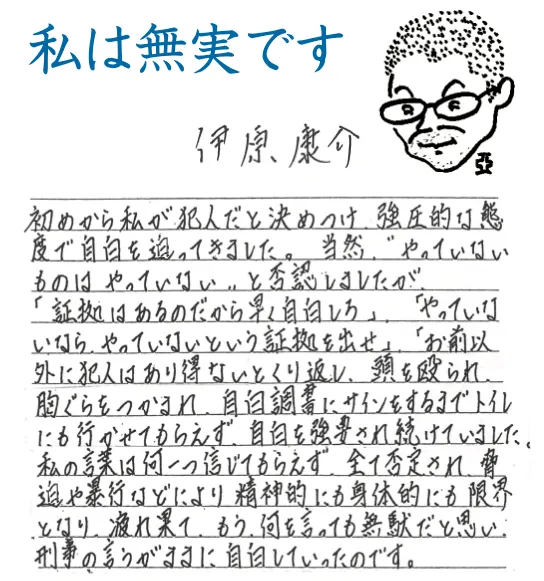 私は無実です
伊原康介
亞
初めから私が犯人だと決めつけ、強圧的な態
度で自白を迫ってきました。当然、"やっていない
ものはやっていない"と否認しましたが、
「証拠はあるのだから早く自白しろ」、「やっていな
いなら、やっていないという証拠を出せ」、「お前以
外に犯人はあり得ないとくり返し、頭を殴られ、
胸ぐらをつかまれ、自白調書にサインをするまでトイレ
にも行かせてもらえず、自白を強要され続けていました。
私の言葉は何一つ信じてもらえず、全て否定され、脅
迫や暴行などにより精神的にも身体的にも限界
となり、疲れ果て、もう、何を言っても無駄だと思い、
刑事の言うがままに自白していったのです。